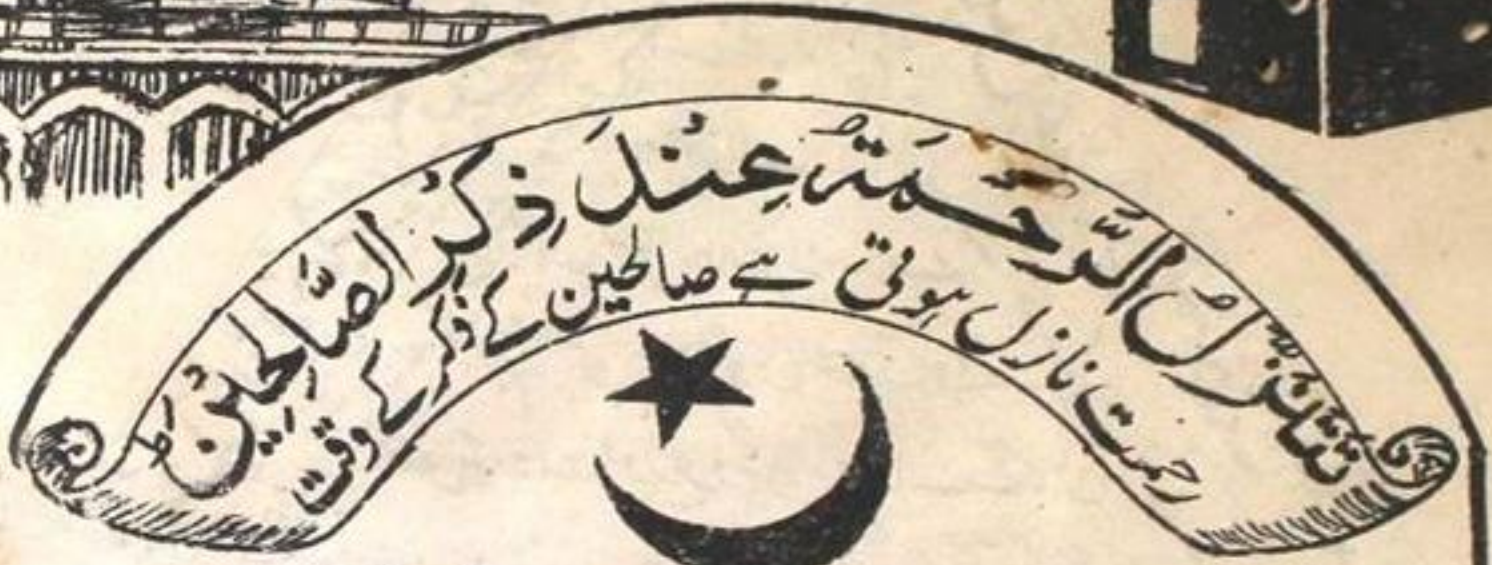 تَتَنَزَّلُ الرَّحْمَةُ عِنْدَ ذِكْرُ الصَّالِحِيْنَ ط
رحمت نازل ہوتی ہے صالحین کے ذکر کے وقت